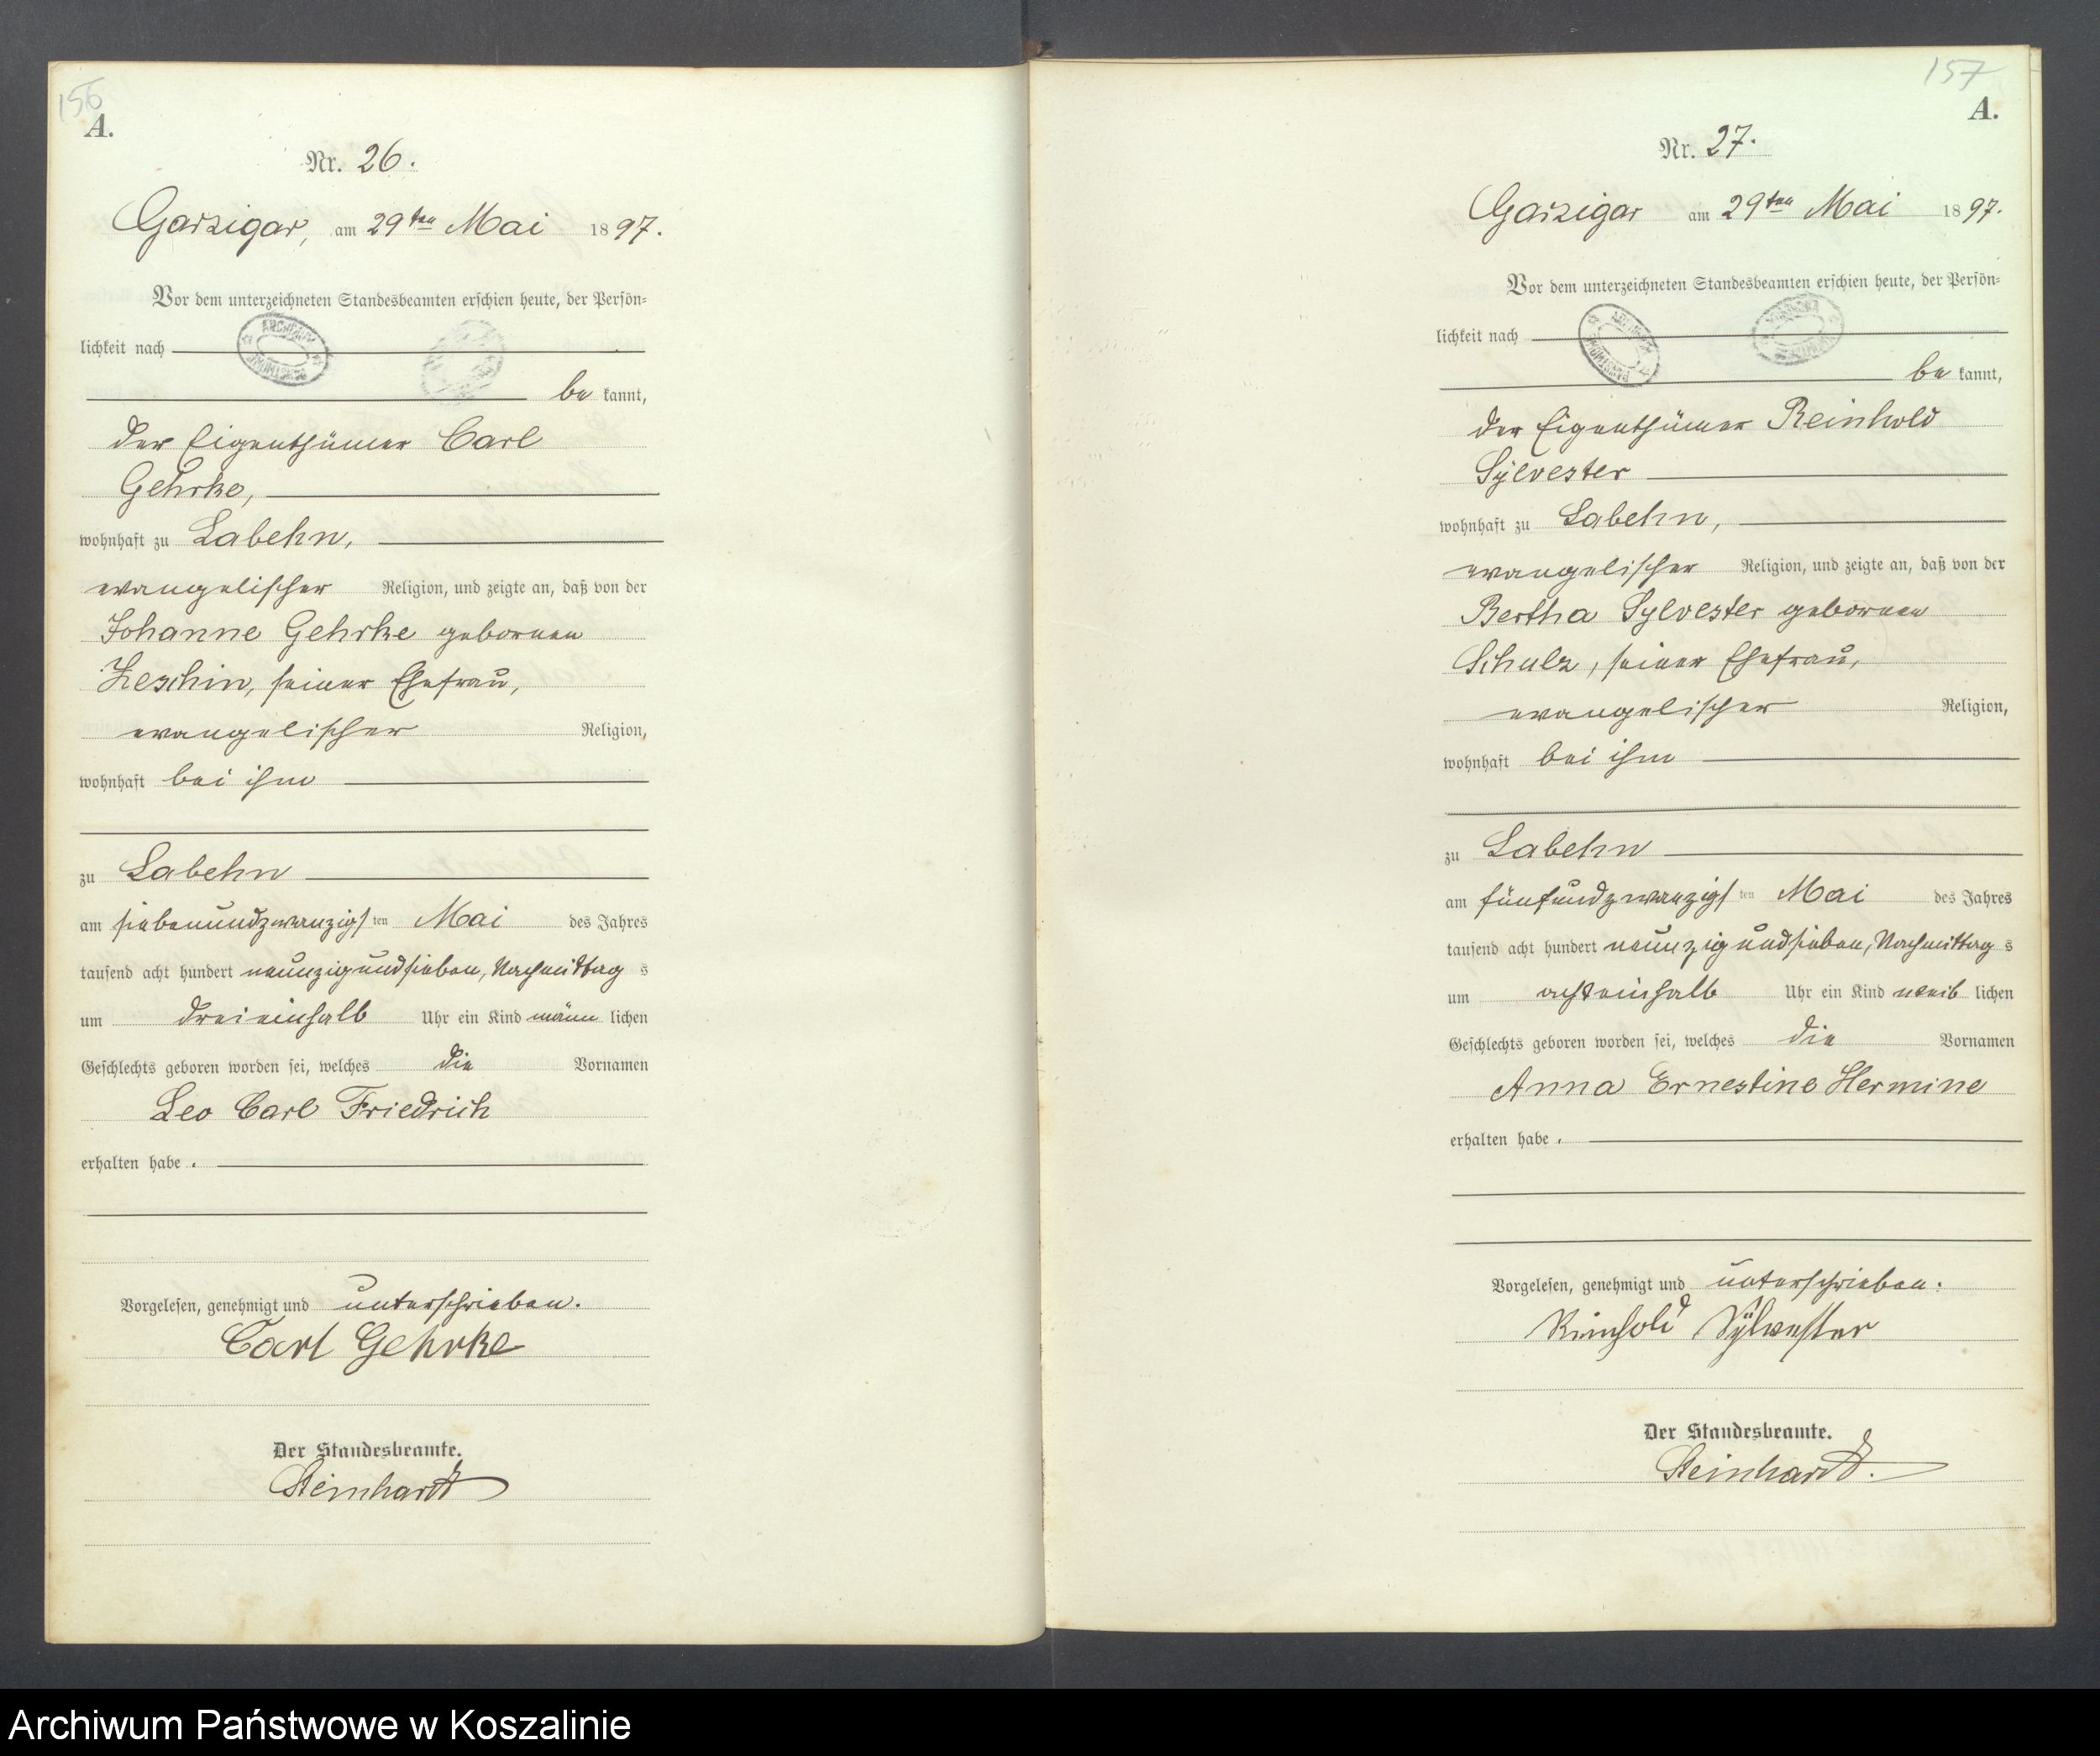 156
A.
Nr. 26.
Garzigar, am 29ten Mai 1897.
Vor dem unterzeichneten Standesbeamten erschien heute, der Persön-
lichkeit nach
be kannt,
der Eigenthümer Carl
Gehrke,
wohnhaft zu Labehn,
evangelischer Religion, und zeigte an, daß von der
Johanne Gehrke gebornen
Zeschin, seiner Ehefrau,
evangelischer Religion,
wohnhaft bei ihm
zu Labehn
am siebenundzwanzigsten Mai des Jahres
tausend acht hundert neunzigundsieben, Nachmittag s
um dreieinhalb Uhr ein Kind männ lichen
Geschlechts geboren worden sei, welches die Vornamen
Leo Carl Friedrich
erhalten habe.
Vorgelesen, genehmigt und unterschrieben.
Carl Gehrke
Der Standesbeamte.
Steinhardt
157
A.
Nr. 27.
Garzigar am 29ten Mai 1897.
Vor dem unterzeichneten Standesbeamten erschien heute, der Persön-
lichkeit nach
be kannt,
der Eigenthümer Reinhold
Sylvester
wohnhaft zu Labehn,
evangelischer Religion, und zeigte an, daß von der
Bertha Sylvester gebornen
Schulz, seiner Ehefrau,
evangelischer Religion,
wohnhaft bei ihm
zu Labehn
am fünfundzwanzigsten Mai des Jahres
tausend acht hundert neunzigundsieben, Nachmittag s
um achteinhalb Uhr ein Kind weib lichen
Geschlechts geboren worden sei, welches die Vornamen
Anna Ernestine Hermine
erhalten habe.
Vorgelesen, genehmigt und unterschrieben.
Reinhold Sylvester
Der Standesbeamte.
Steinhardt.
Archiwum Państwowe w Koszalinie